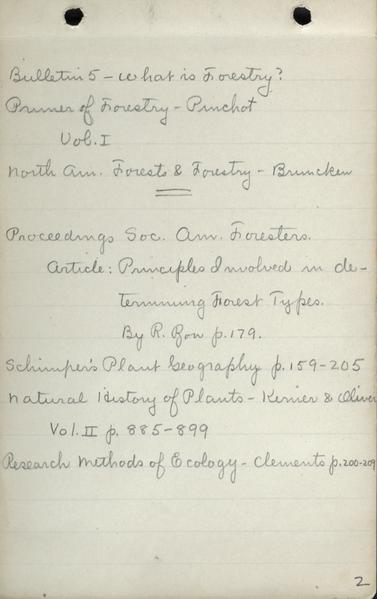 Bulletin 5 - What is Forestry?
Primer of Forestry - Pinchot
Vol. I
North Am. Forests & Forestry - Bruncken
Proceedings Soc. Am. Foresters.
Article: Principles Involved in de-
termining Forest Types.
By R. p. 179.
Schimper's Plant Geography p. 159-205
Natural History of Plants - Kerner & Oliver
Vol. II p. 885-899
Research Methods of Ecology - Clements p. 200-209
2